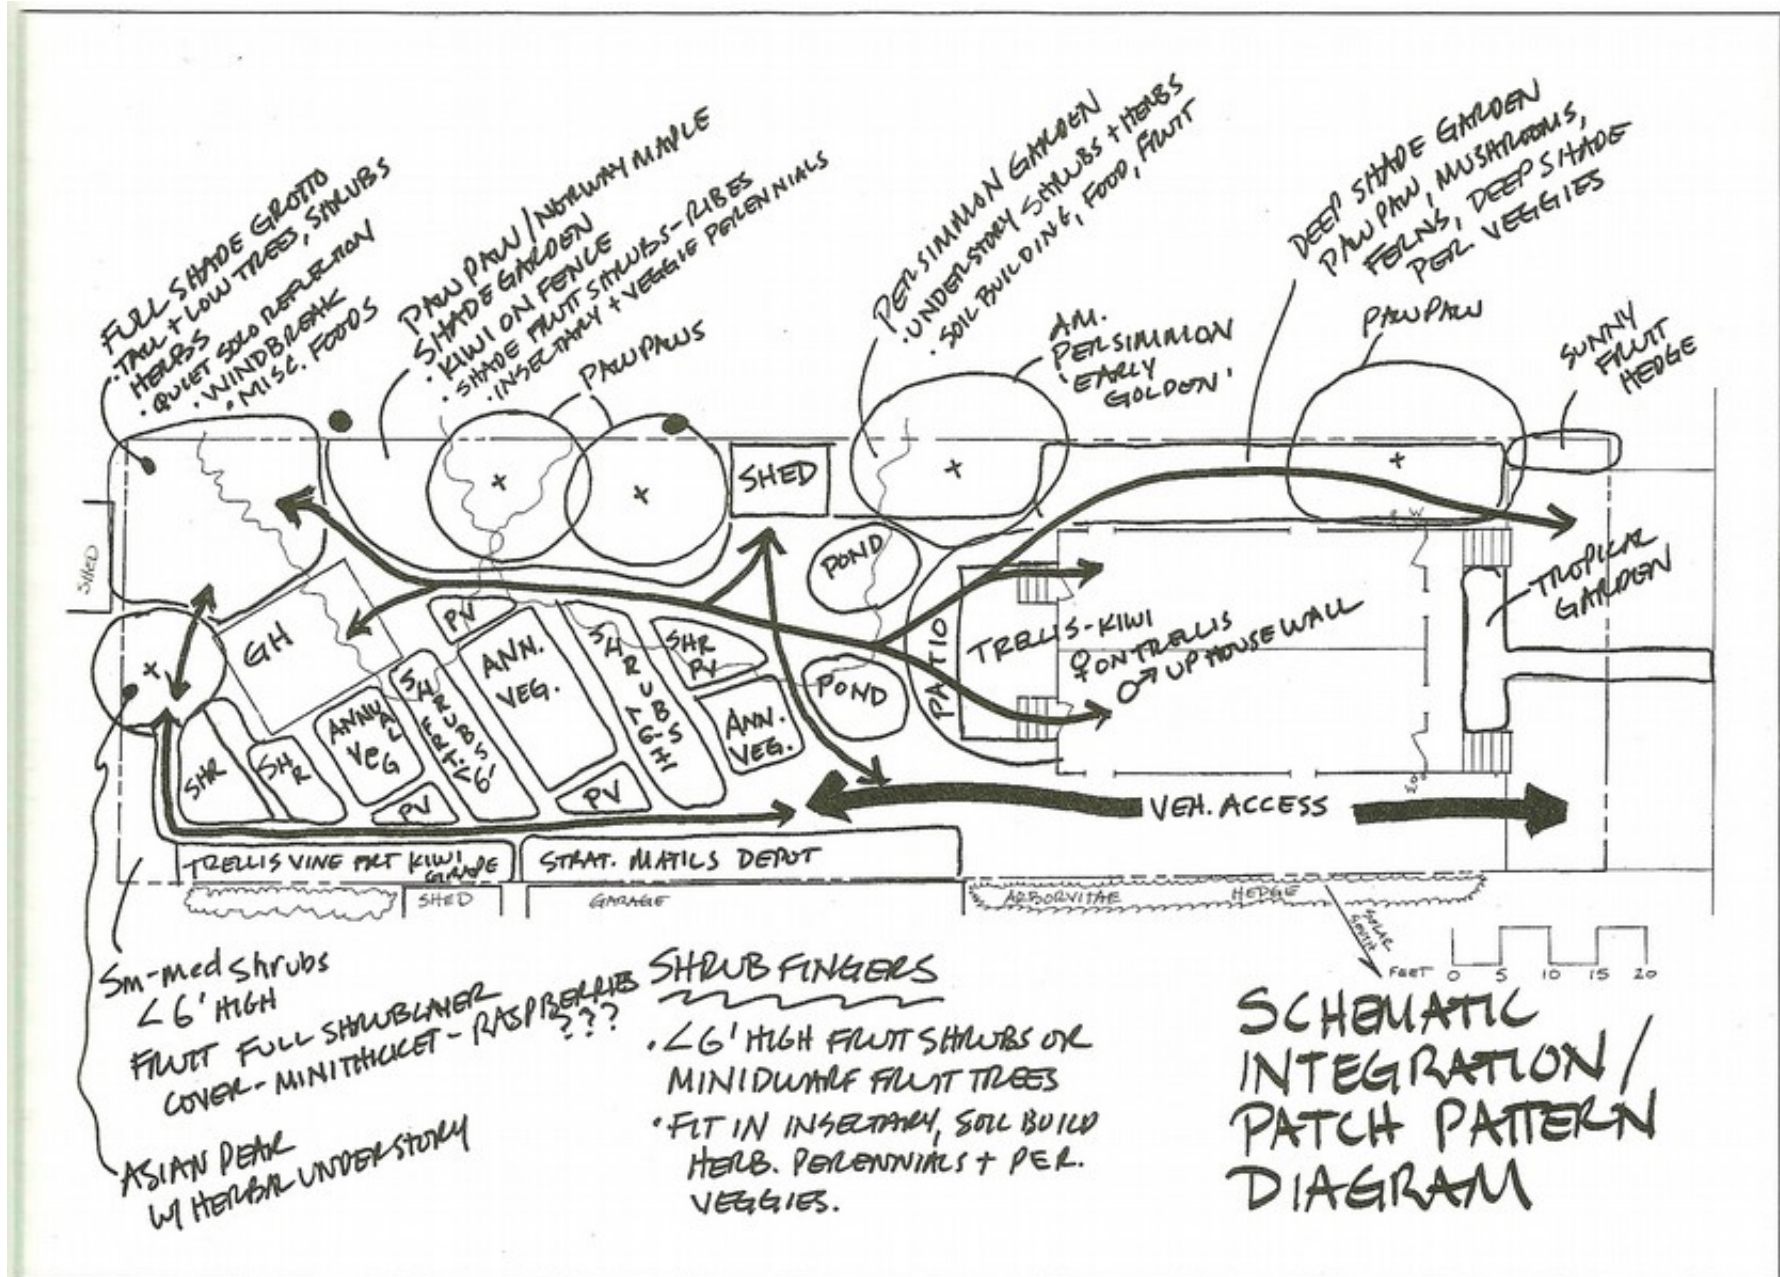 FULL SHADE GROTTO
· TALL + LOW TREES, SHRUBS
HERBS
· QUIET SOLO REFLECTION
· WINDBREAK
· MISC. FOODS
PAW PAW / NORWAY MAPLE
SHADE GARDEN
· KIWI ON FENCE
· SHADE FRUIT SHRUBS - RIBES
· INSECTARY + VEGGIE PERENNIALS
PAWPAWS
PERSIMMON GARDEN
· UNDERSTORY SHRUBS + HERBS
· SOIL BUILDING, FOOD, FRUIT
AM.
PERSIMMON
'EARLY
GOLDEN'
DEEP SHADE GARDEN
PAWPAW, MUSHROOMS,
FERNS, DEEP SHADE
PER VEGGIES
PAWPAW
SUNNY
FRUIT
HEDGE
SHED
SHED
POND
TROPICAL
GARDEN
GH
PV
ANN.
VEG.
SHRUBS
<6' HI
SHR
PV
POND
PATIO
TRELLIS - KIWI
♀ ON TRELLIS
♂ UP HOUSE WALL
SHR
SHR
ANNUAL
VEG
SHRUBS
FRT. <6'
PV
PV
ANN.
VEG.
VEH. ACCESS
TRELLIS VINE FRT KIWI
GRAPE
STRAT. MATILS DEPOT
SHED
GARAGE
ARBORVITAE HEDGE
SOLAR
SOUTH
FEET 0 5 10 15 20
Sm-med shrubs
< 6' HIGH
FRUIT FULL SHRUBLAYER
COVER - MINITHICKET - RASPBERRIES
???
ASIAN PEAR
W/ HERBAL UNDERSTORY
SHRUB FINGERS
· < 6' HIGH FRUIT SHRUBS OR
MINIDWARF FRUIT TREES
· FIT IN INSECTARY, SOIL BUILD
HERB. PERENNIALS + PER.
VEGGIES.
SCHEMATIC
INTEGRATION /
PATCH PATTERN
DIAGRAM